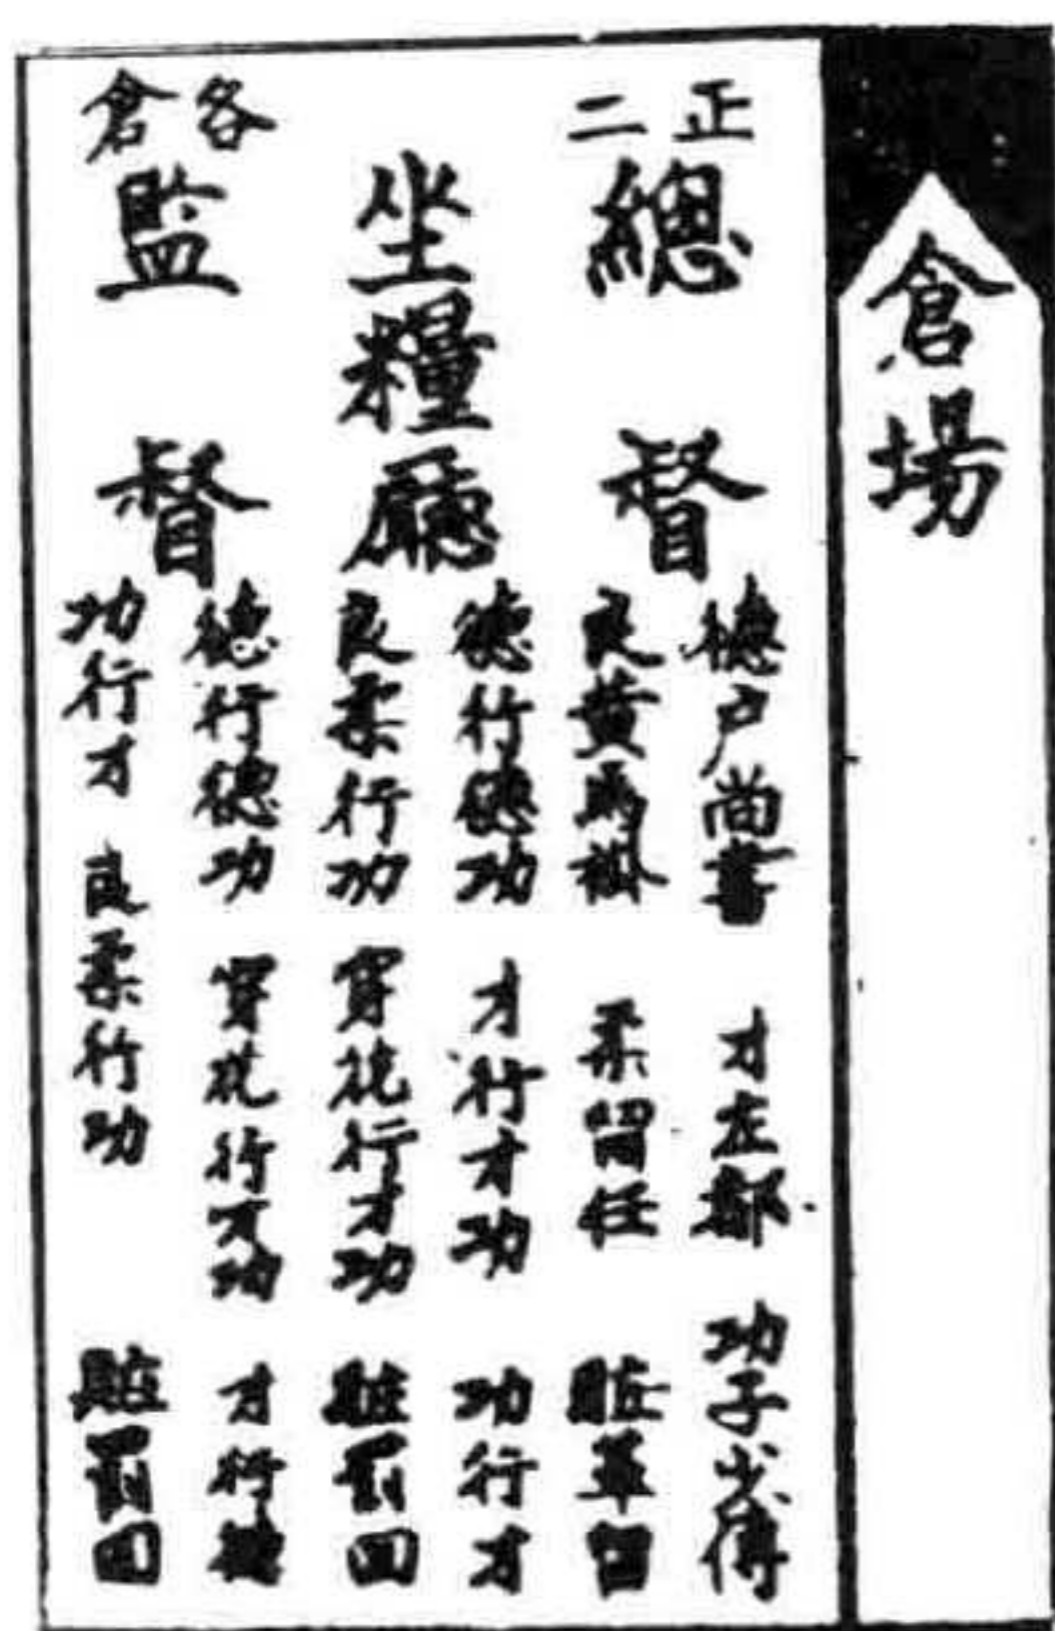 倉場
正二
總督
德戶尚書 才左都 功子少傅
良黃馬褂 柔留任 賍革留
坐糧廳
德行德功 才行才功 功行才
良柔行功 穿花行才功 賍罰回
各倉
監督
德行德功 穿花行才功 才行德
功行才 良柔行功 賍罰回